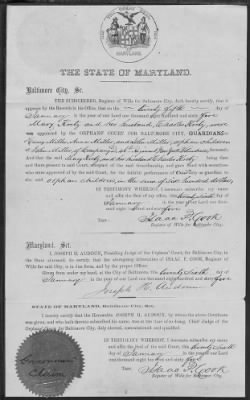 THE STATE OF MARYLAND.
Baltimore City, Sc.
THE SUBSCRIBER, Register of Wills for Baltimore City, doth hereby certify, that it
appears by the Records in his Office that on the twenty fifth day of
January in the year of our Lord one thousand eight hundred and sixty five
Mary Kirby and her husband, Charles Kirby, were
appointed by the ORPHANS' COURT FOR BALTIMORE CITY, GUARDIANS
Miller, Ann Miller, and Miller orphan children
of John Miller of
And that the said Mary Kirby and her husband Charles Kirby being
orphan children in the sum of six hundred dollars
IN TESTIMONY WHEREOF, I hereunto subscribe my name
and affix the seal of the said Court, this twenty sixth
day of January in the year of our Lord one thousand
eight hundred and sixty five
Test: Isaac P. Cook
Register of Wills for Baltimore City.
Maryland, Sc.
I, JOSEPH H. AUDOUN, Presiding Judge of the Orphans' Court, for Baltimore City, in the
State aforesaid, do certify that the foregoing attestation of ISAAC P. COOK, Register of
Wills for the said City, is in due form, and by the proper Officer.
Given from under my hand, at the City of Baltimore, this twenty sixth day of
January in the year of our Lord one thousand eight hundred and sixty five
Joseph H. Audoun
STATE OF MARYLAND, Baltimore City, Sct.
I hereby certify that the Honorable JOSEPH H. AUDOUN, by whom the above Certificate
was given, and who hath thereto subscribed his name was at the time of so doing, Chief Judge of the
Orphans' Court of Baltimore City, duly elected, commissioned and qualified.
IN TESTIMONY WHEREOF, I hereunto subscribe my name
and affix the seal of the said Court, this twenty sixth
day of January in the year of our Lord one thousand
eight hundred and sixty five
Test: Isaac P. Cook
Register of Wills for Baltimore City.